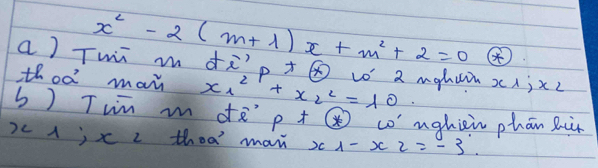 x² - 2(m+1)x + m² + 2 = 0 (*)
a) Tìm m để pt (*) có 2 nghiệm x1; x2
thoả mãn x1² + x2² = 10.
b) Tìm m để pt (*) có nghiệm phân biệt
x1; x2 thoả mãn x1 - x2 = -3.